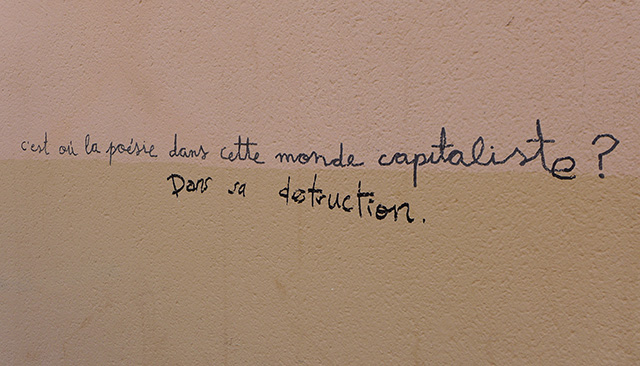 c'est où la poésie dans cette monde capitaliste ?
Dans sa destruction.